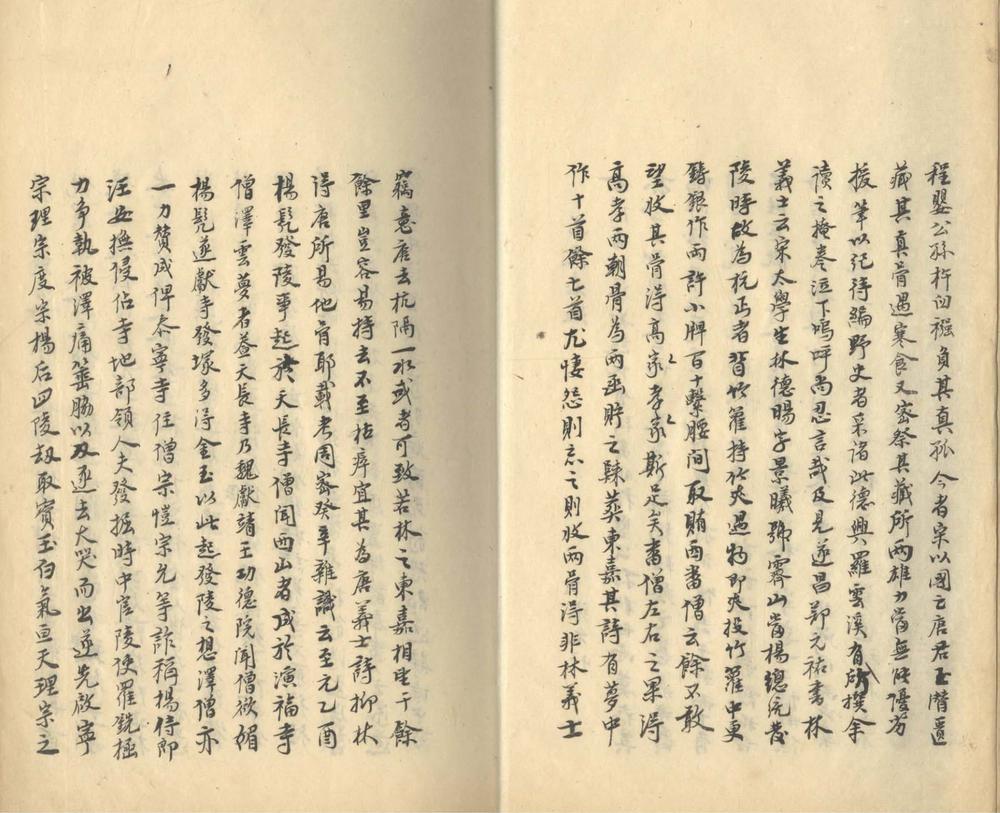 程嬰公孫杵臼襁負其真孤今者宋以國亡唐君玉潛匿
藏其真骨遇寒食又密祭其藏所兩雄力當無能優劣
授筆以紀待編野史者采諸此德興羅雲溪有所撰余
讀之掩卷泣下嗚呼尚忍言哉及見遂昌鄭元祐書林
義士云宋太學生林德暘字景曦號霽山當楊總統發
陵時故為杭丐者背竹籮持竹夾遇物即夾投竹籮中更
鑄銀作兩許小牌百十繫腰間取賄西番僧云餘不敢
望收其骨得高家孝家斯足矣番僧左右之果得
高孝兩朝骨為兩函貯之歸葬東嘉其詩有夢中
作十首餘七首尤悽怨則忘之則收兩骨得非林義士
竊意唐去杭隔一水或者可致若林之東嘉相望千餘
餘里豈容易持去不至枯瘁宜其為唐義士詩抑林
得唐所易地宵耶載考周密癸辛雜識云至元乙酉
楊髡發陵事起於天長寺僧聞西山者成於演福寺
僧澤雲夢者蓋天長寺乃魏獻靖王功德院聞僧欲媚
楊髡遂獻寺發塚多得金玉以此起發陵之想澤僧亦
一力贊成俾泰寧寺住僧宗愷宗允等詐稱楊侍郎
汪安撫侵佔寺地部領人夫發掘時中官陵使羅銑極
力爭執被澤痛箠脇以刃逐去大哭而出遂先啟寧
宗理宗度宗楊后四陵劫取寶玉白氣亙天理宗之